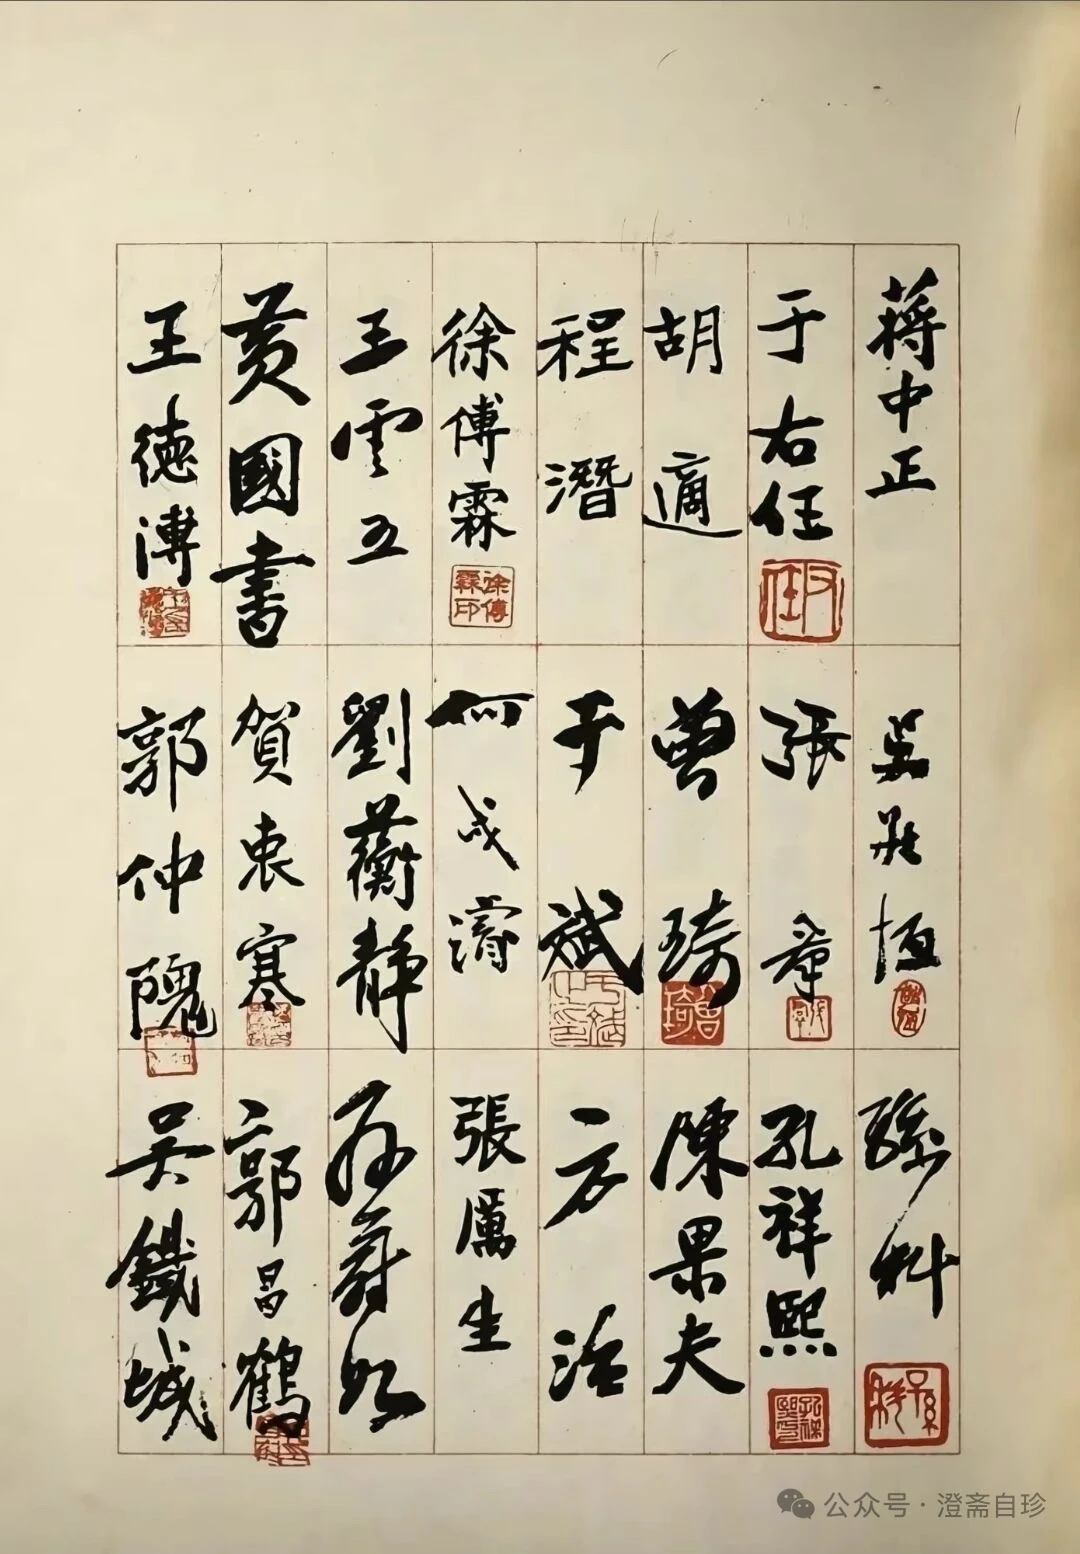 蔣中正
于右任
胡適
程潛
徐傅霖
王雲五
黃國書
王德溥
吳鼎恆
張羣
曾琦
于斌
何成濬
劉蘅靜
賀衷寒
郭仲隗
孫科
孔祥熙
陳果夫
方治
張厲生
孫蔚如
郭昌鶴
吳鐵城
徐傅霖印
公众号·澄斋自珍